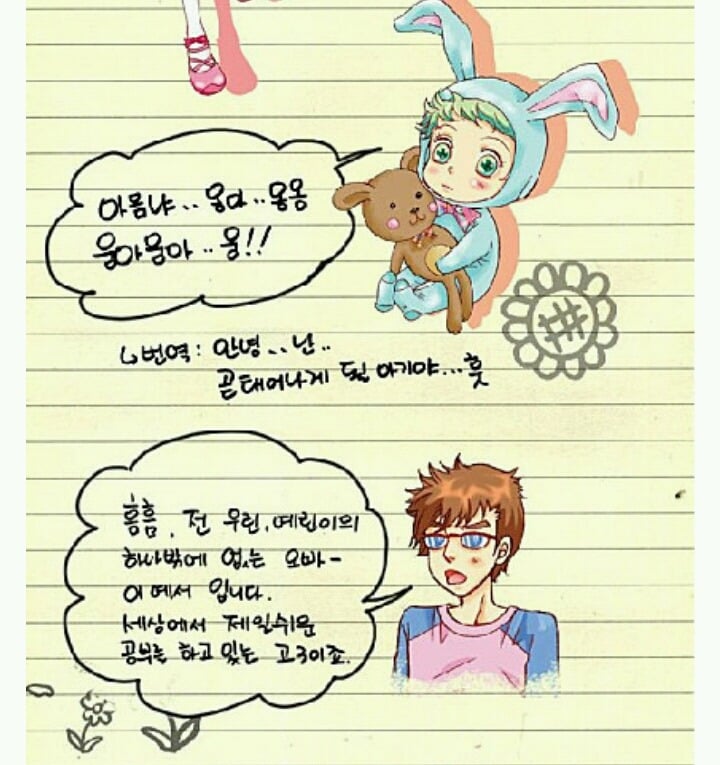 아몸냐.. 웅아.. 웅옹
웅아웅아.. 웅!!
↳번역: 안녕... 난..
곧태어나게 될 아기야... 훗
흠흠, 전 우린, 예린이의
하나밖에 없는 오빠-
이예서 입니다.
세상에서 제일쉬운
공부를 하고 있는 고3이죠.